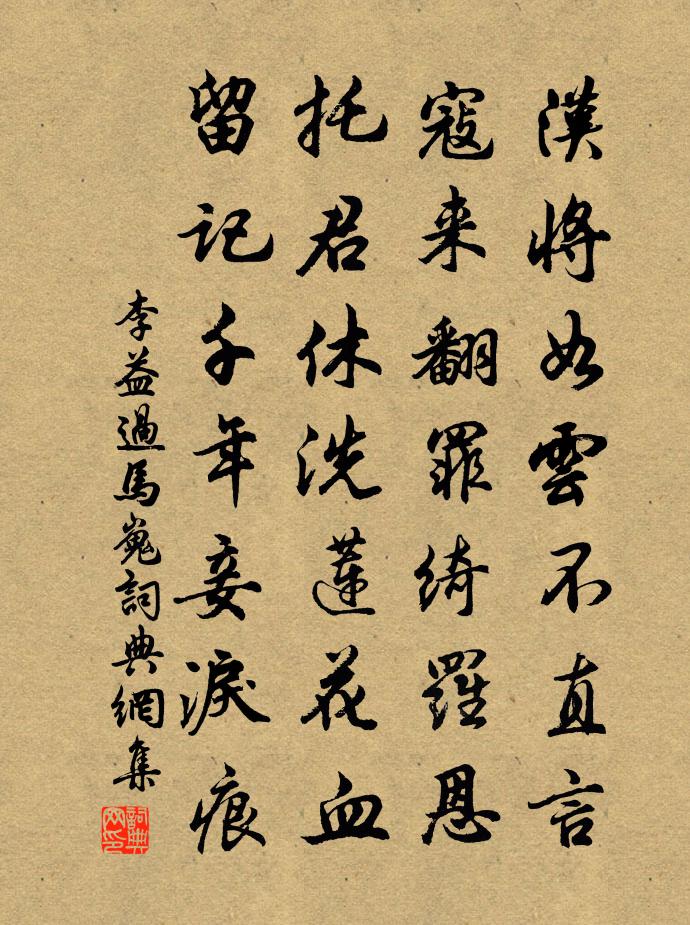 漢將如雲不直言
寇来翻罪綺羅恩
托君休洗蓮花血
留记千年妾淚痕
李益過馬嵬詞典網集
詞典网印